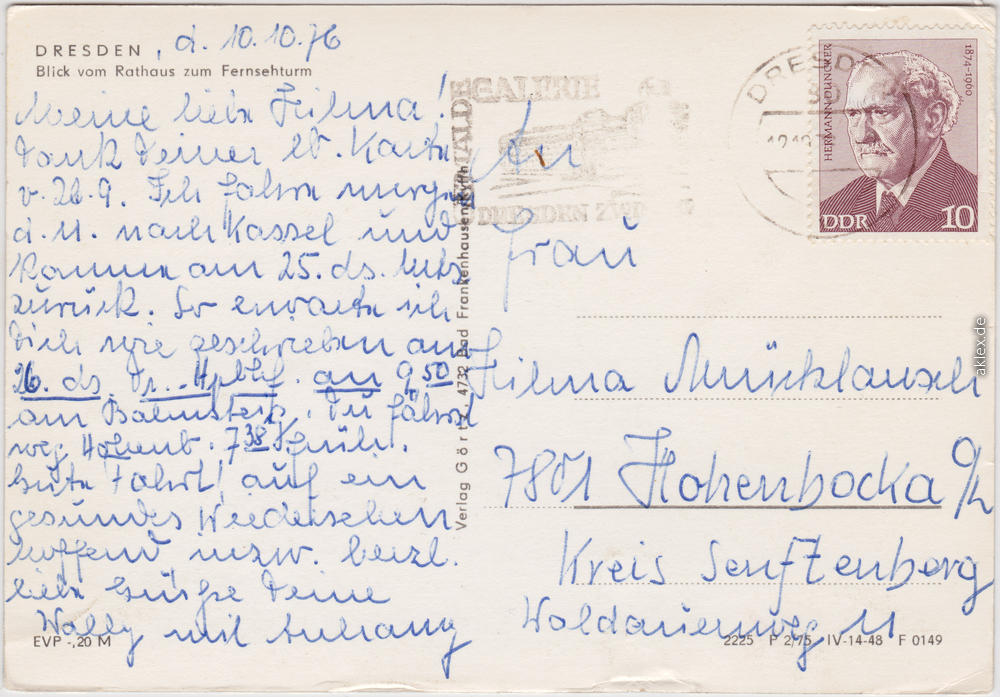 DRESDEN , d. 10.10.76
Blick vom Rathaus zum Fernsehturm
Meine liebe Hilma!
Dank Deiner lb. Karte
v. 26.9. Ich fahre morgen
d. 11. nach Kassel und
komme am 25. ds. Mts
zurück. So erwarte ich
Dich wie geschrieben am
26. ds. Dr.-Hpbhf. an 9 50
am Bahnsteig. Du fährst
weg Hohenb. 7 38 früh.
Gute Fahrt! auf ein
gesundes Wiedersehen
hoffend, inzw. herzl.
liebe Grüße Deine
Wally mit Anhang
EVP -,20 M
Verlag Görtz, 4732 Bad Frankenhausen/Kyffh.
GALERIE
DRESDEN
DRESD
HERMANN DUNCKER
1874-1960
DDR 10
An
Frau
Hilma
7801 Hohenbocka O/L
Kreis Senftenberg
Waldauerweg 11
2225 P 2/75 IV-14-48 F 0149
aklex.de